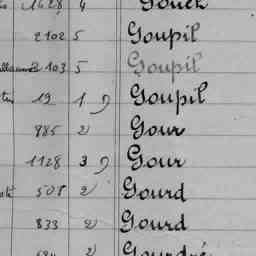 1628 4 Gouex
2102 5 Goupil
2103 5 Goupil
19 1 Goupil
885 2 Gour
1128 3 Gour
508 2 Gourd
833 2 Gourd
2 Gourdré